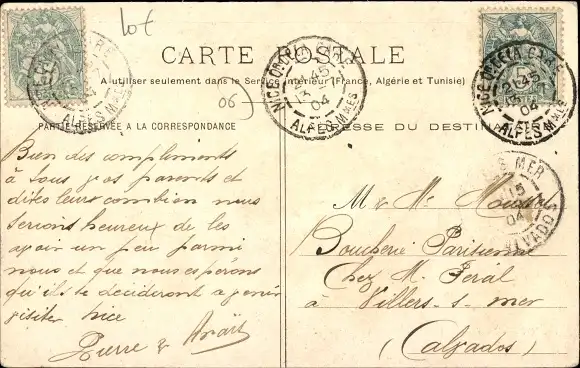 lot
CARTE POSTALE
A utiliser seulement dans le Service intérieur (France, Algérie et Tunisie)
06
PARTIE RÉSERVÉE A LA CORRESPONDANCE
ADRESSE DU DESTINATAIRE
NICE
04
ALPES MMES
NICE
2 45
04
ALPES MMES
S MER
15
04
CALVADOS
Bien des compliments
à tous vos parents et
dites leurs combien nous
serions heureux de les
avoir un peu parmi
nous et que nous espérons
qu'ils se décideront à venir
visiter Nice
Pierre & Anaïs
M & Me
Boucherie Parisienne
Chez M. Feral
à Villers-s-mer
(Calvados)